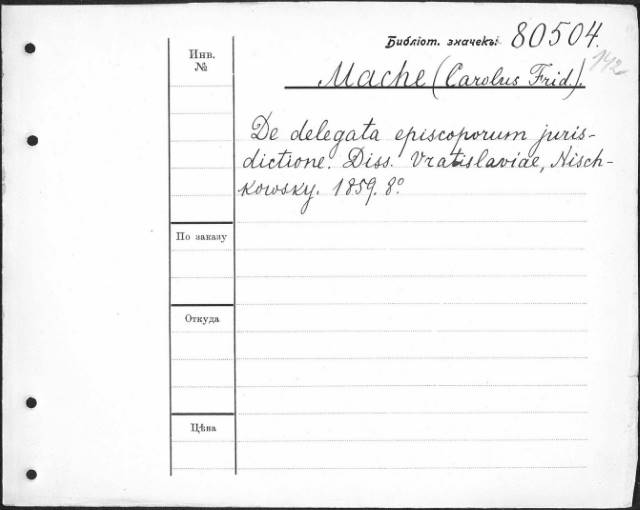 Библіот. значекъ: 80504.
142
Инв.
№
Mache (Carolus Frid.).
De delegata episcoporum juris-
dictione. Diss. Vratislaviae, Nisch-
kowsky. 1859. 8º
По заказу
Откуда
Цѣна